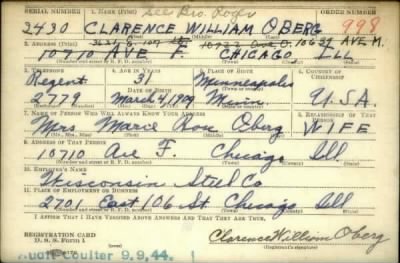 SERIAL NUMBER 1. NAME (Print) ORDER NUMBER
see Bro. Roger
2430 CLARENCE WILLIAM OBERG 998
(First) (Middle) (Last)
2. ADDRESS (Print) 10634 AVE M.
10710 AVE F. CHICAGO ILL
3. TELEPHONE 4. AGE IN YEARS 5. PLACE OF BIRTH 6. COUNTRY OF CITIZENSHIP
Regent 31 Minneapolis
DATE OF BIRTH
2779 March 4, 1909 Minn. U.S.A.
7. NAME OF PERSON WHO WILL ALWAYS KNOW YOUR ADDRESS RELATIONSHIP OF THAT PERSON
Mrs Marie Rose Oberg WIFE
(Mr., Mrs., Miss) (First) (Middle) (Last)
9. ADDRESS OF THAT PERSON
10710 Ave F. Chicago Ill
(Number and street or R. F. D. number) (Town) (County) (State)
10. EMPLOYER'S NAME
Wisconsin Steel Co
11. PLACE OF EMPLOYMENT OR BUSINESS
2701 East 106 St Chicago Ill
(Number and street or R. F. D. number) (Town) (County) (State)
I AFFIRM THAT I HAVE VERIFIED ABOVE ANSWERS AND THAT THEY ARE TRUE.
REGISTRATION CARD
D. S. S. Form 1
Clarence William Oberg
(Registrant's signature)
Coulter 9.9.44